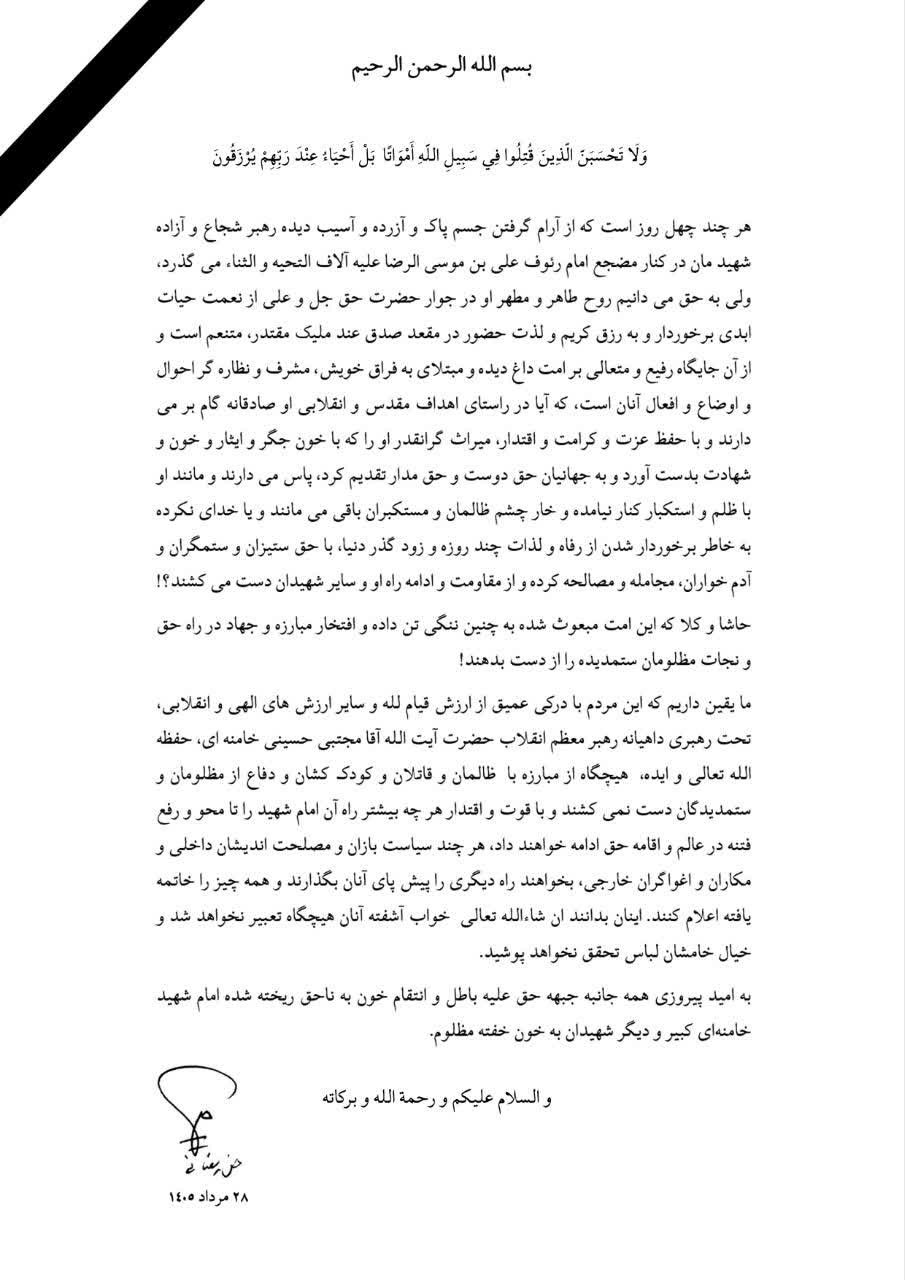 بسم الله الرحمن الرحیم
وَلَا تَحْسَبَنَّ الَّذِينَ قُتِلُوا فِي سَبِيلِ اللَّهِ أَمْوَاتًا بَلْ أَحْيَاءٌ عِنْدَ رَبِّهِمْ يُرْزَقُونَ
هر چند چهل روز است که از آرام گرفتن جسم پاک و آزرده و آسیب دیده رهبر شجاع و آزاده
شهید مان در کنار مضجع امام رئوف علی بن موسی الرضا علیه آلاف التحیه و الثناء می گذرد،
ولی به حق می دانیم روح طاهر و مطهر او در جوار حضرت حق جل و علی از نعمت حیات
ابدی برخوردار و به رزق کریم و لذت حضور در مقعد صدق عند ملیک مقتدر، متنعم است و
از آن جایگاه رفیع و متعالی بر امت داغ دیده و مبتلای به فراق خویش، مشرف و نظاره گر احوال
و اوضاع و افعال آنان است، که آیا در راستای اهداف مقدس و انقلابی او صادقانه گام بر می
دارند و با حفظ عزت و کرامت و اقتدار، میراث گرانقدر او را که با خون جگر و ایثار و خون و
شهادت بدست آورد و به جهانیان حق دوست و حق مدار تقدیم کرد، پاس می دارند و مانند او
با ظلم و استکبار کنار نیامده و خار چشم ظالمان و مستکبران باقی می مانند و یا خدای نکرده
به خاطر برخوردار شدن از رفاه و لذات چند روزه و زود گذر دنیا، با حق ستیزان و ستمگران و
آدم خواران، مجامله و مصالحه کرده و از مقاومت و ادامه راه او و سایر شهیدان دست می کشند؟!
حاشا و کلا که این امت مبعوث شده به چنین ننگی تن داده و افتخار مبارزه و جهاد در راه حق
و نجات مظلومان ستمدیده را از دست بدهند!
ما یقین داریم که این مردم با درکی عمیق از ارزش قیام لله و سایر ارزش های الهی و انقلابی،
تحت رهبری داهیانه رهبر معظم انقلاب حضرت آیت الله آقا مجتبی حسینی خامنه ای، حفظه
الله تعالی و ایده، هیچگاه از مبارزه با ظالمان و قاتلان و کودک کشان و دفاع از مظلومان و
ستمدیدگان دست نمی کشند و با قوت و اقتدار هر چه بیشتر راه آن امام شهید را تا محو و رفع
فتنه در عالم و اقامه حق ادامه خواهند داد، هر چند سیاست بازان و مصلحت اندیشان داخلی و
مکاران و اغواگران خارجی، بخواهند راه دیگری را پیش پای آنان بگذارند و همه چیز را خاتمه
یافته اعلام کنند. اینان بدانند ان شاءالله تعالی خواب آشفته آنان هیچگاه تعبیر نخواهد شد و
خیال خامشان لباس تحقق نخواهد پوشید.
به امید پیروزی همه جانبه جبهه حق علیه باطل و انتقام خون به ناحق ریخته شده امام شهید
خامنه‌ای کبیر و دیگر شهیدان به خون خفته مظلوم.
و السلام علیکم و رحمة الله و برکاته
۲۸ مرداد ۱۴۰۵